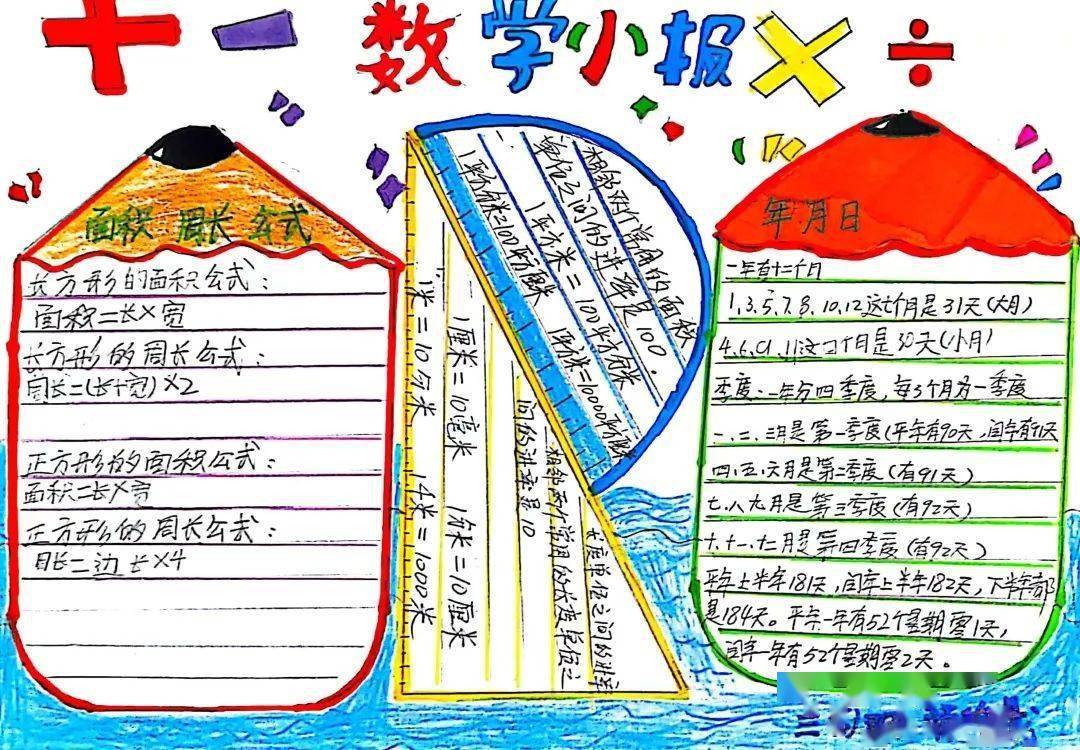 数学小报
面积 周长 公式
长方形的面积公式：
面积=长×宽
长方形的周长公式：
周长=(长+宽)×2
正方形的面积公式：
面积=长×宽
正方形的周长公式：
周长=边长×4
相邻两个常用的面积
单位之间的进率是100.
1平方米=100平方分米
1平方分米=100平方厘米
1平方米=10000平方厘米
长度单位之间的进率
相邻两个常用的长度单位之
间的进率是10
1分米=10厘米
1厘米=10毫米
1千米=1000米
1米=10分米
年月日
一年有十二个月
1,3,5,7,8,10,12这七个月是31天(大月)
4,6,9,11这四个月是30天(小月)
季度:一年分四季度,每3个月为一季度
一、二、三月是第一季度(平年有90天,闰年有91天
四、五、六月是第二季度(有91天)
七、八、九月是第三季度(有92天)
十、十一、十二月是第四季度(有92天)
平年上半年181天,闰年上半年182天,下半年都
是184天。平年一年有52个星期零1天,
闰年一年有52个星期零2天。